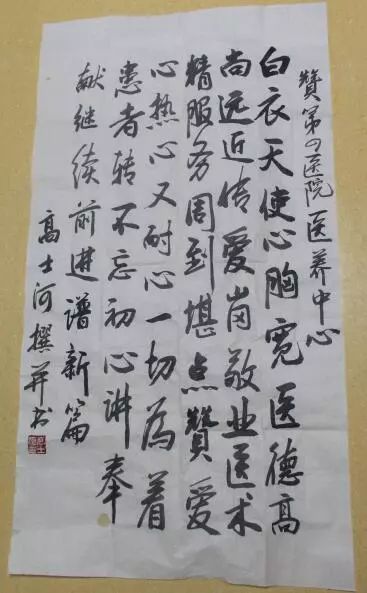 贊第四医院医养中心
白衣天使心胸宽医德高
尚远近传爱岗敬业医术
精服务周到堪点赞爱
心热心又耐心一切为着
患者转不忘初心讲奉
献继续前进谱新篇
高士河撰并书